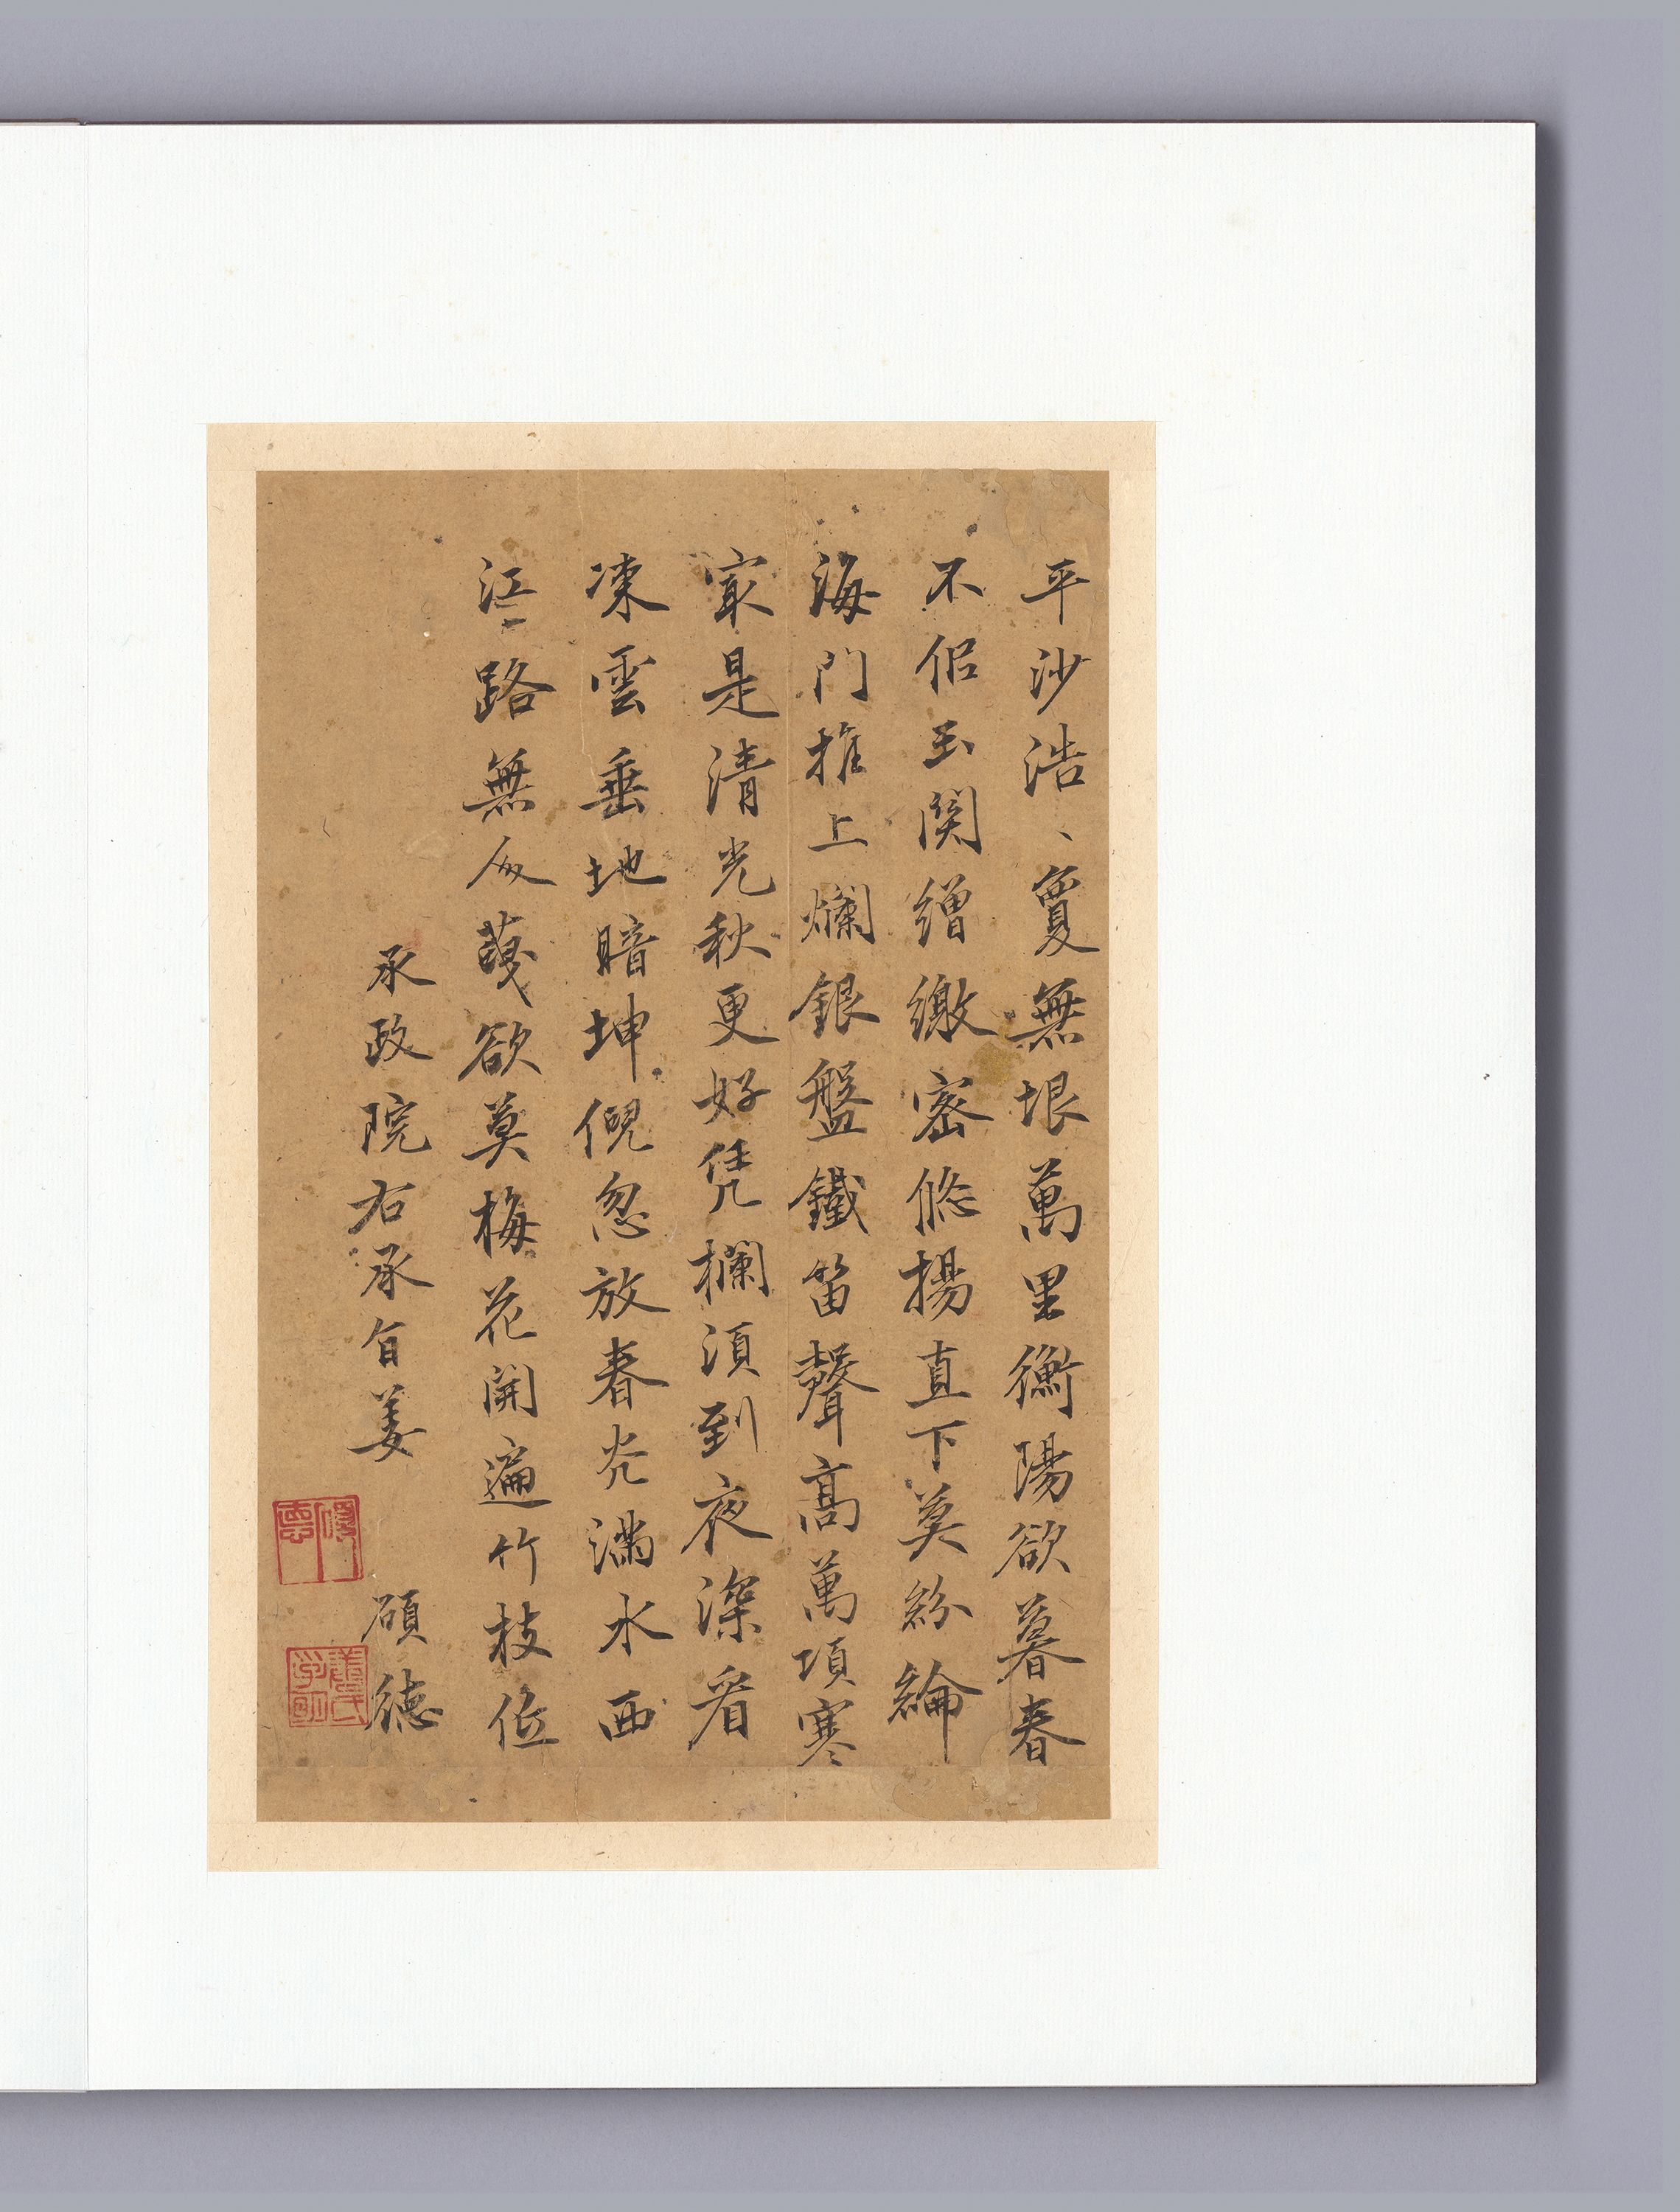 平沙浩、敻無垠萬里衡陽欲暮春
不佀玉関繒繳密悠揚直下莫紛綸
海門推上爛銀盤鐵笛聲高萬頃寒
㝡是清光秋更好凭欄須到夜深看
凍雲垂地暗坤倪忽放春光滿水西
江路無人欲莫梅花開遍竹枝低
承政院右承旨姜 碩德